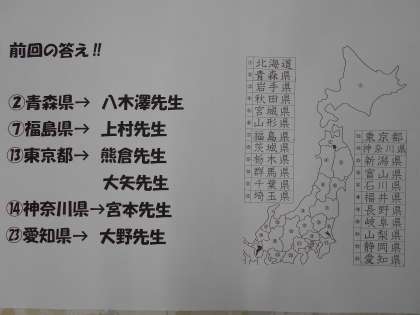 前回の答え!!
②青森県→ 八木澤先生
⑦福島県→ 上村先生
⑬東京都→ 熊倉先生
大矢先生
⑭神奈川県→宮本先生
㉓愛知県→ 大野先生
北海道
青森県
岩手県
秋田県
宮城県
山形県
福島県
茨城県
栃木県
群馬県
千葉県
埼玉県
東京都
神奈川県
新潟県
富山県
石川県
福井県
長野県
岐阜県
山梨県
静岡県
愛知県